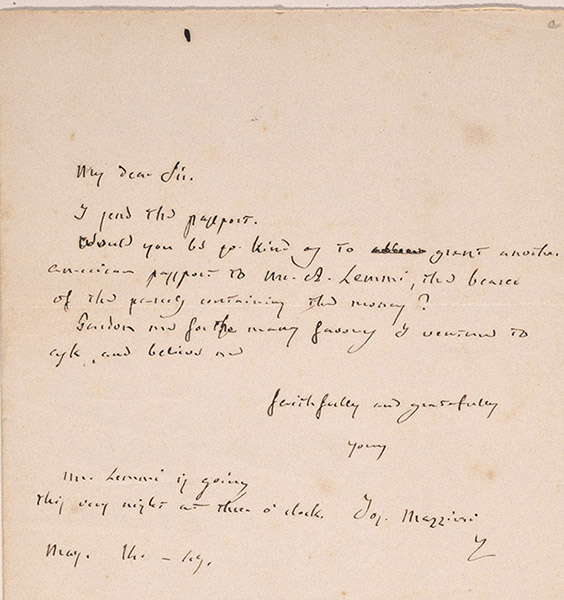 My dear Sir.
I send the passport.
Would you be so kind as to grant another
american passport to Mr. A. Lemmi, the bearer
of the parcels containing the money?
Pardon me for the many favours I venture to
ask, and believe me
faithfully and gratefully
yours
Mr. Lemmi is going
this very night at three o'clock.
Jos. Mazzini
May. the